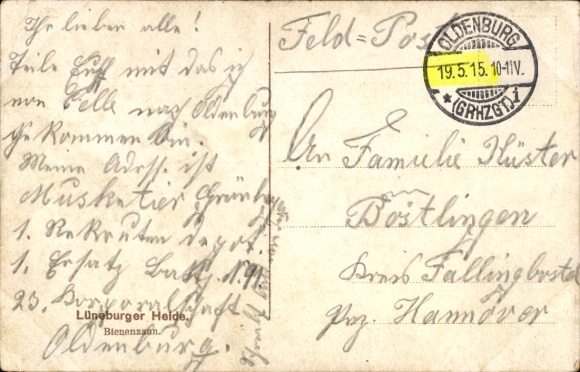 Ihr lieben alle!
Teile Euch mit das ich
von Celle nach Oldenburg
gekommen bin.
Meine Adrss. ist
Musketier
1. Rekruten Depot.
1. Ersatz Batl. N. 91.
23. Korporalschaft
Oldenburg.
Lüneburger Heide.
Bienenzaun.
Feld=Post
OLDENBURG
19.5.15.10-11V.
* (GRHZGT.) 1
An Familie Küster
Böstlingen
Kreis Fallingbostel
Prz. Hannover